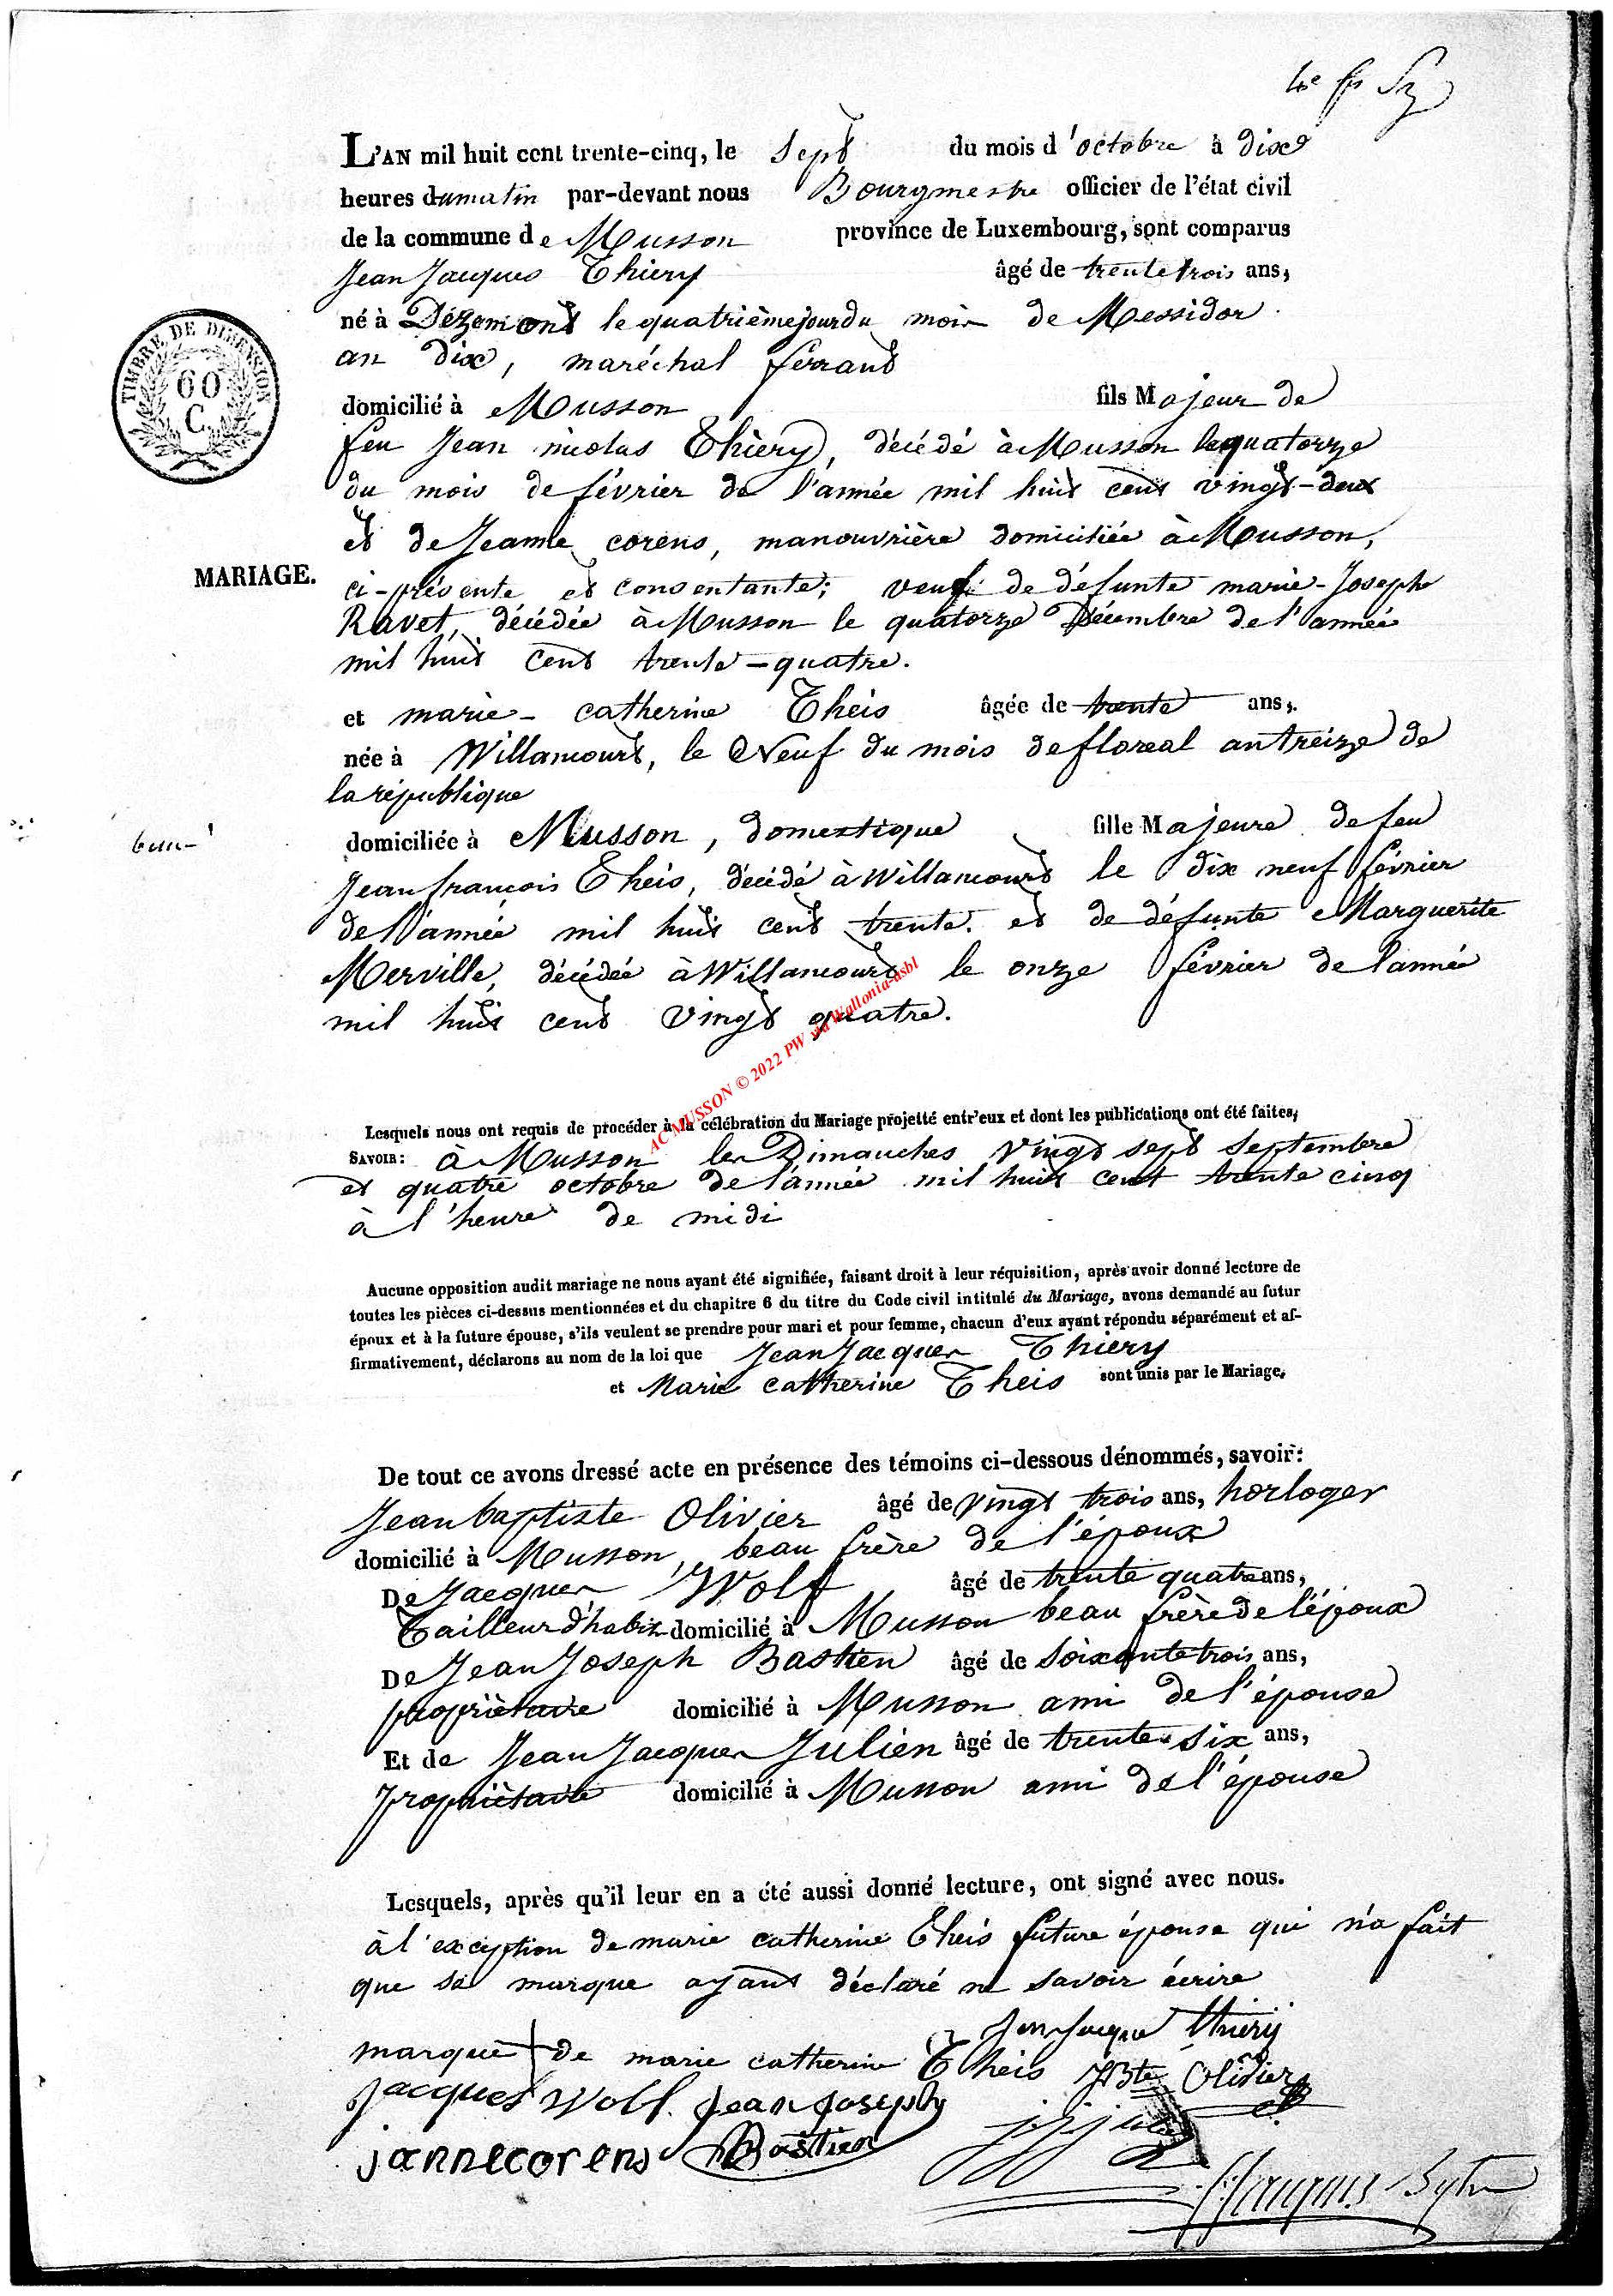 L'AN mil huit cent trente-cinq, le Sept du mois d'octobre à dix
heures du matin par-devant nous Bourgmestre officier de l'état civil
de la commune de Musson province de Luxembourg, sont comparus
Jean Jacques Thiery âgé de trente trois ans,
né à Dézemont le quatrième jour du mois de Messidor
an dix, maréchal ferrant
domicilié à Musson fils Majeur de
feu Jean nicolas Thiery, décédé à Musson le quatorze
du mois de février de l'année mil huit cent vingt-deux
et de Jeanne corens, manouvrière domiciliée à Musson,
MARIAGE.
ci-présente et consentante; veuf de défunte marie-Josephe
Ravet, décédée à Musson le quatorze Décembre de l'année
mil huit cent trente-quatre.
et marie-catherine Theis âgée de trente ans,
née à Willancourt, le Neuf du mois de floreal an treize de
la république
domiciliée à Musson, domestique fille Majeure de feu
Jean françois Theis, décédé à Willancourt le dix neuf février
de l'année mil huit cent trente. et de défunte Marguerite
Merville, décédée à Willancourt le onze février de l'année
mil huit cent vingt quatre.
TIMBRE DE DIMENSION
60
C.
AC MUSSON © 2022 PW via Wallonia-asbl
Lesquels nous ont requis de procéder à la célébration du Mariage projetté entr'eux et dont les publications ont été faites,
SAVOIR: à Musson les Dimanches vingt sept Septembre
et quatre octobre de l'année mil huit cent trente cinq
à l'heure de midi
Aucune opposition audit mariage ne nous ayant été signifiée, faisant droit à leur réquisition, après avoir donné lecture de
toutes les pièces ci-dessus mentionnées et du chapitre 6 du titre du Code civil intitulé du Mariage, avons demandé au futur
époux et à la future épouse, s'ils veulent se prendre pour mari et pour femme, chacun d'eux ayant répondu séparément et af-
firmativement, déclarons au nom de la loi que Jean Jacques Thiery
et Marie catherine Theis sont unis par le Mariage.
De tout ce avons dressé acte en présence des témoins ci-dessous dénommés, savoir:
Jean baptiste Olivier âgé de vingt trois ans, horloger
domicilié à Musson, beau frère de l'époux
De Jacques Wolf âgé de trente quatre ans,
Tailleur d'habits domicilié à Musson beau frère de l'époux
De Jean Joseph Bastien âgé de Soixante trois ans,
propriètaire domicilié à Musson ami de l'épouse
Et de Jean Jacques Julien âgé de trente six ans,
propriètaire domicilié à Musson ami de l'épouse
Lesquels, après qu'il leur en a été aussi donné lecture, ont signé avec nous.
à l'exception de marie catherine Theis future épouse qui n'a fait
que sa marque ayant déclaré ne savoir écrire
Jean Jacque thiery
marque de marie catherine Theis JBte Olivier
Jacques Wolf. Jean Joseph
janne corens Bastien